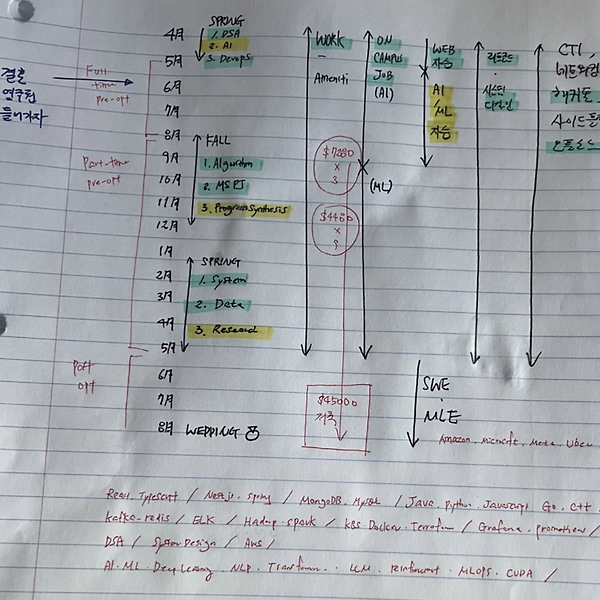 4月
5月
6月
7月
8月
9月
10月
11月
12月
1月
2月
3月
4月
5月
6月
7月
8月 WEDDING
결혼
Full
time
pre-opt
Part-time
pre-opt
Post
opt
SPRING
1. DSA
2. AI
3. Devops
FALL
1. Algorithm
2. MSPJ
3. Program Synthesis
SPRING
1. System
2. Data
3. Research
WORK
$45000
저축
ON
CAMPUS
JOB
(AI)
(ML)
WEB
자습
AI
/ML
자습
리트코드
시스템
디자인
CTI,
해커톤
SWE
MLE
Amazon. Microsoft. Meta. Uber
React. Typescript / Nestjs. spring / MongoDB. MySQL / Java. python. Javascript. Go. C++
kafka-redis / ELK / Hadoop. spark / K8S Docker. Terraform / Grafana. prometheus /
DSA / System Design / AWS /
AI. ML. Deep Learning. NLP. Transformer. LLM. MLOPS. CUDA /